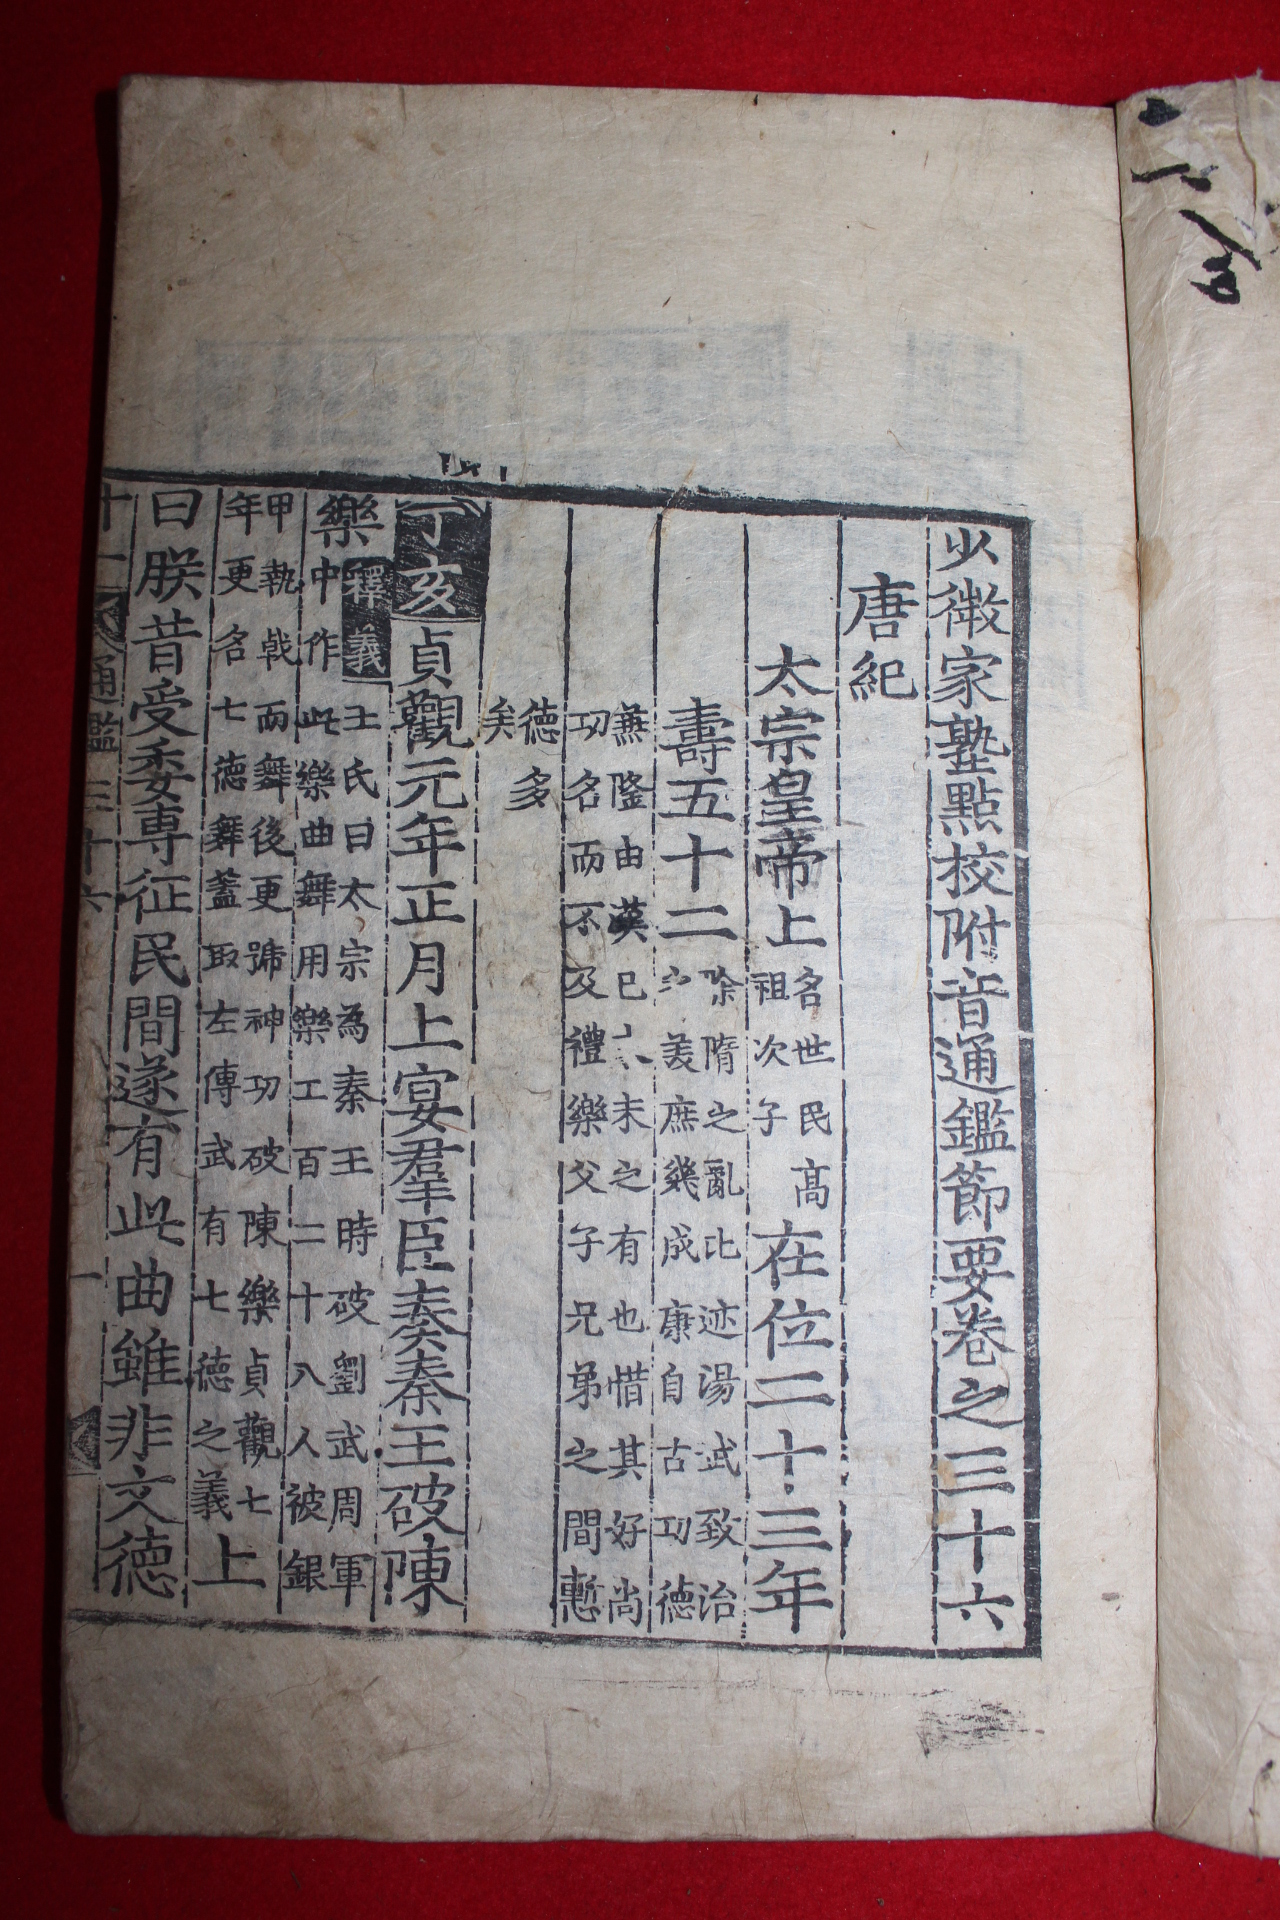 少微家塾點校附音通鑑節要卷之三十六
唐紀
太宗皇帝上 名世民高祖次子 在位二十三年
壽五十二 除隋之亂比迹湯武致治之美庶幾成康自古功德
兼隆由漢已來未之有也惜其好尚功名而不及禮樂父子兄弟之間慙
德多矣
丁亥 貞觀元年正月上宴羣臣奏秦王破陳
樂 釋義 王氏曰太宗為秦王時破劉武周軍中作此樂曲舞用樂工百二十八人被銀
甲執戟而舞後更號神功破陳樂貞觀七年更名七德舞蓋取左傳武有七德之義 上
曰朕昔受委專征民間遂有此曲雖非文德
通鑑三十六 一